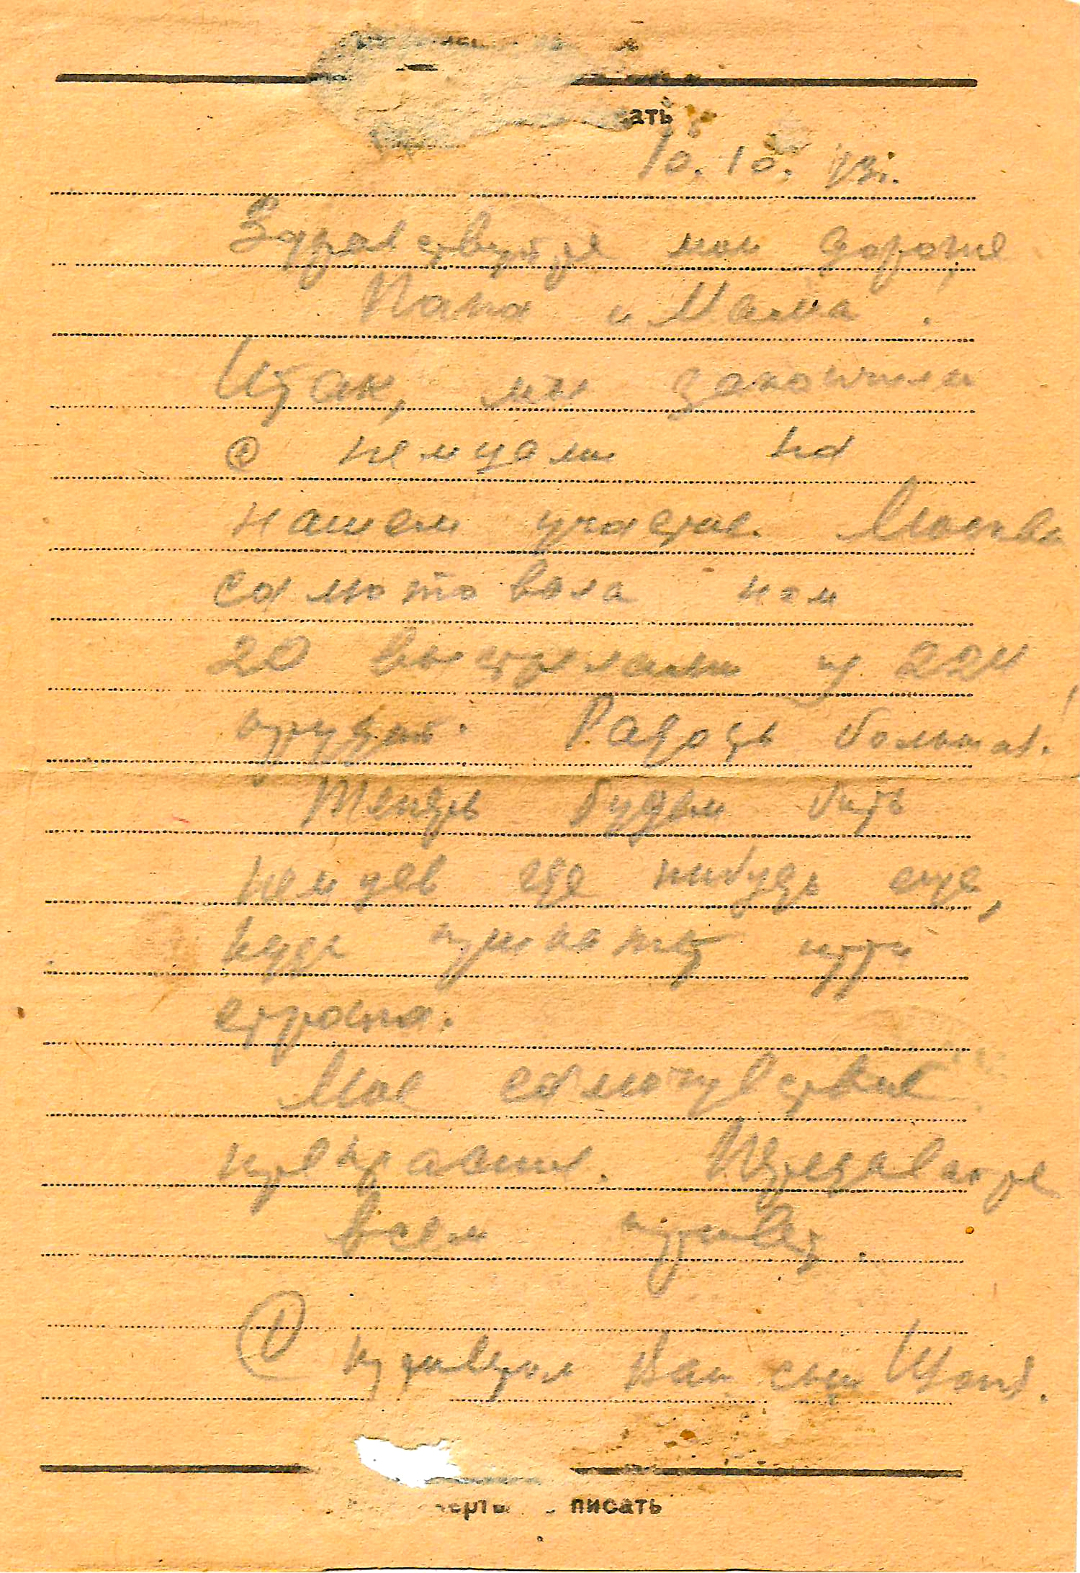 ать
10. 10. 43г.
Здравствуйте мои дорогие
Папа и Мама.
Итак, мы закончили
с немцами на
нашем участке. Москва
салютовала нам
20 выстрелами из 224
орудий. Радость большая!
Теперь будем бить
немцев где нибудь еще,
куда прикажет
страна.
Мое самочувствие
прекрасное. Передавайте
всем привет.
С приветом Ваш сын
писать